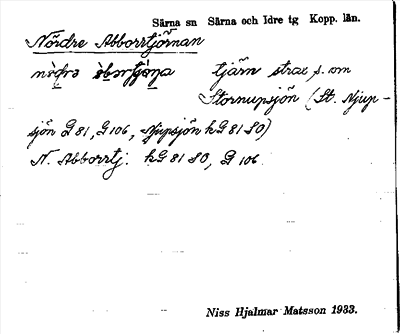 Särna sn Särna och Idre tg Kopp. län.
Nördre Abborrtjörnan
tjärn strax s. om
Stornupsjön (St. Njup-
sjön G 81, G 106, Njupsjön hG 81 SO)
N. Abborrtj. hG 81 SO, G 106
Niss Hjalmar Matsson 1933.